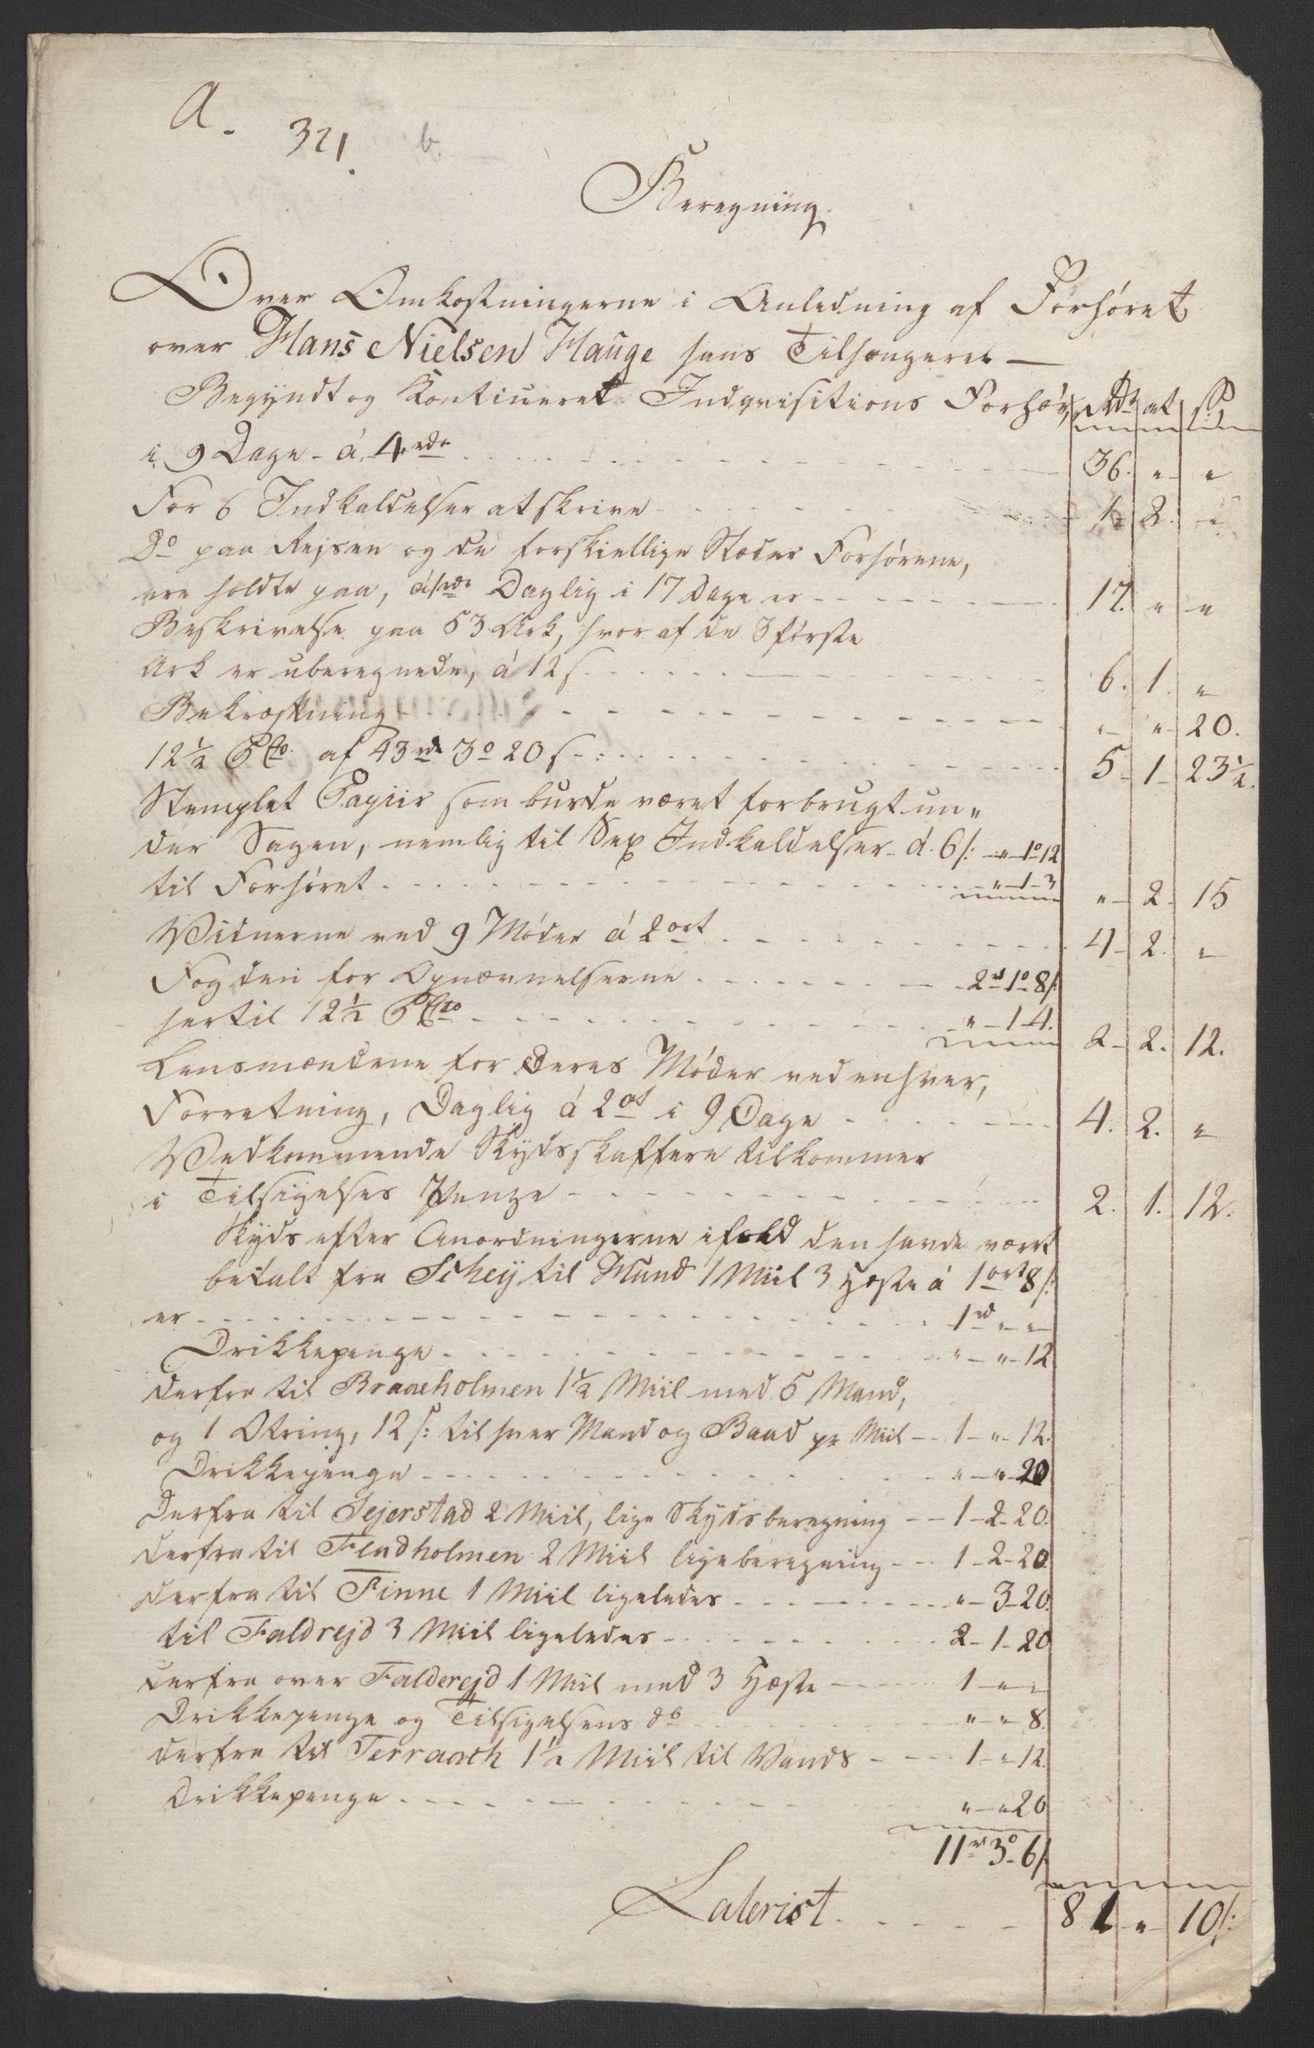 A.
321. b.
Beregning.
Over Omkostningerne i Anledning af Forhøret
over Hans Nielsen Hauge hans Tilhængere —
Begyndt og Kontinueret Indqvisitions Forhør Rdr ort s
i 9 Dage - á 4 rdr 36. " "
For 6 Indkaldelser at skrive 1. 2. "
Do paa Rejsen og de forskiellige Stæder Forhørene,
ere holdte paa, á 1 rdr Daglig i 17 Dage er 17. " "
Beskrivelse paa 53 Ark, hvoraf de 3 første
Ark er uberegnede, á 12 s 6. 1. "
Bekræftning " " 20.
12½ PCto. af 43 rd 3 o 20 s 5 - 1 - 23½.
Stemplet Papiir som burde været forbrugt un"
der Sagen, nemlig til Sex Indkaldelser á 6 s: " 1 o 12
til Forhøret " - 1 - 3 " - 2 - 15
Vidnerne ved 9 Møder á 2 ort 4 - 2. "
Fogden for Opnævnelserne 2 rd 1 o 8 s:
hertil 12½ PCto " - 1 - 4. 2 - 2. 12.
Lensmændene for deres Møder ved enhver,
Forretning, Daglig á 2 ort i 9 Dage 4. 2. "
Vedkommende Skydsskaffere tilkommer
i Tilsigelses Penge 2. 1. 12.
Skyds efter Anordningerne ifald den havde vært
betalt fra Scheij til Hund 1 Miil 3 Heste á 1 ort 8 s:
er 1 rd " "
Drikkepenge " " 12
derfra til Braaeholmen 1½ Miil med 5 Mand,
og 1 Otring, 12 s: til hver Mand og Baad pr Miil 1 - " - 12.
Drikkepenge " " 20
Derfra til Sejerstad 2 Miil, lige Skydsberegning 1 - 2 - 20.
derfra til Fladholmen 2 Miil lige beregning 1 - 2 - 20
derfra til Finne 1 Miil ligeledes " - 3 - 20.
til Faldrejd 3 Miil ligeledes 2 - 1 - 20
derfra over Falderejd 1 Miil med 3 Heste 1 - " "
Drikkepenge og Tilsigelsens do " " 8.
derfra til Terraach 1½ Miil til Vands 1 - " 12.
Drikkepenge " " 20
11 rd 3 o 6 s:
Laterist 81 " 10 s: